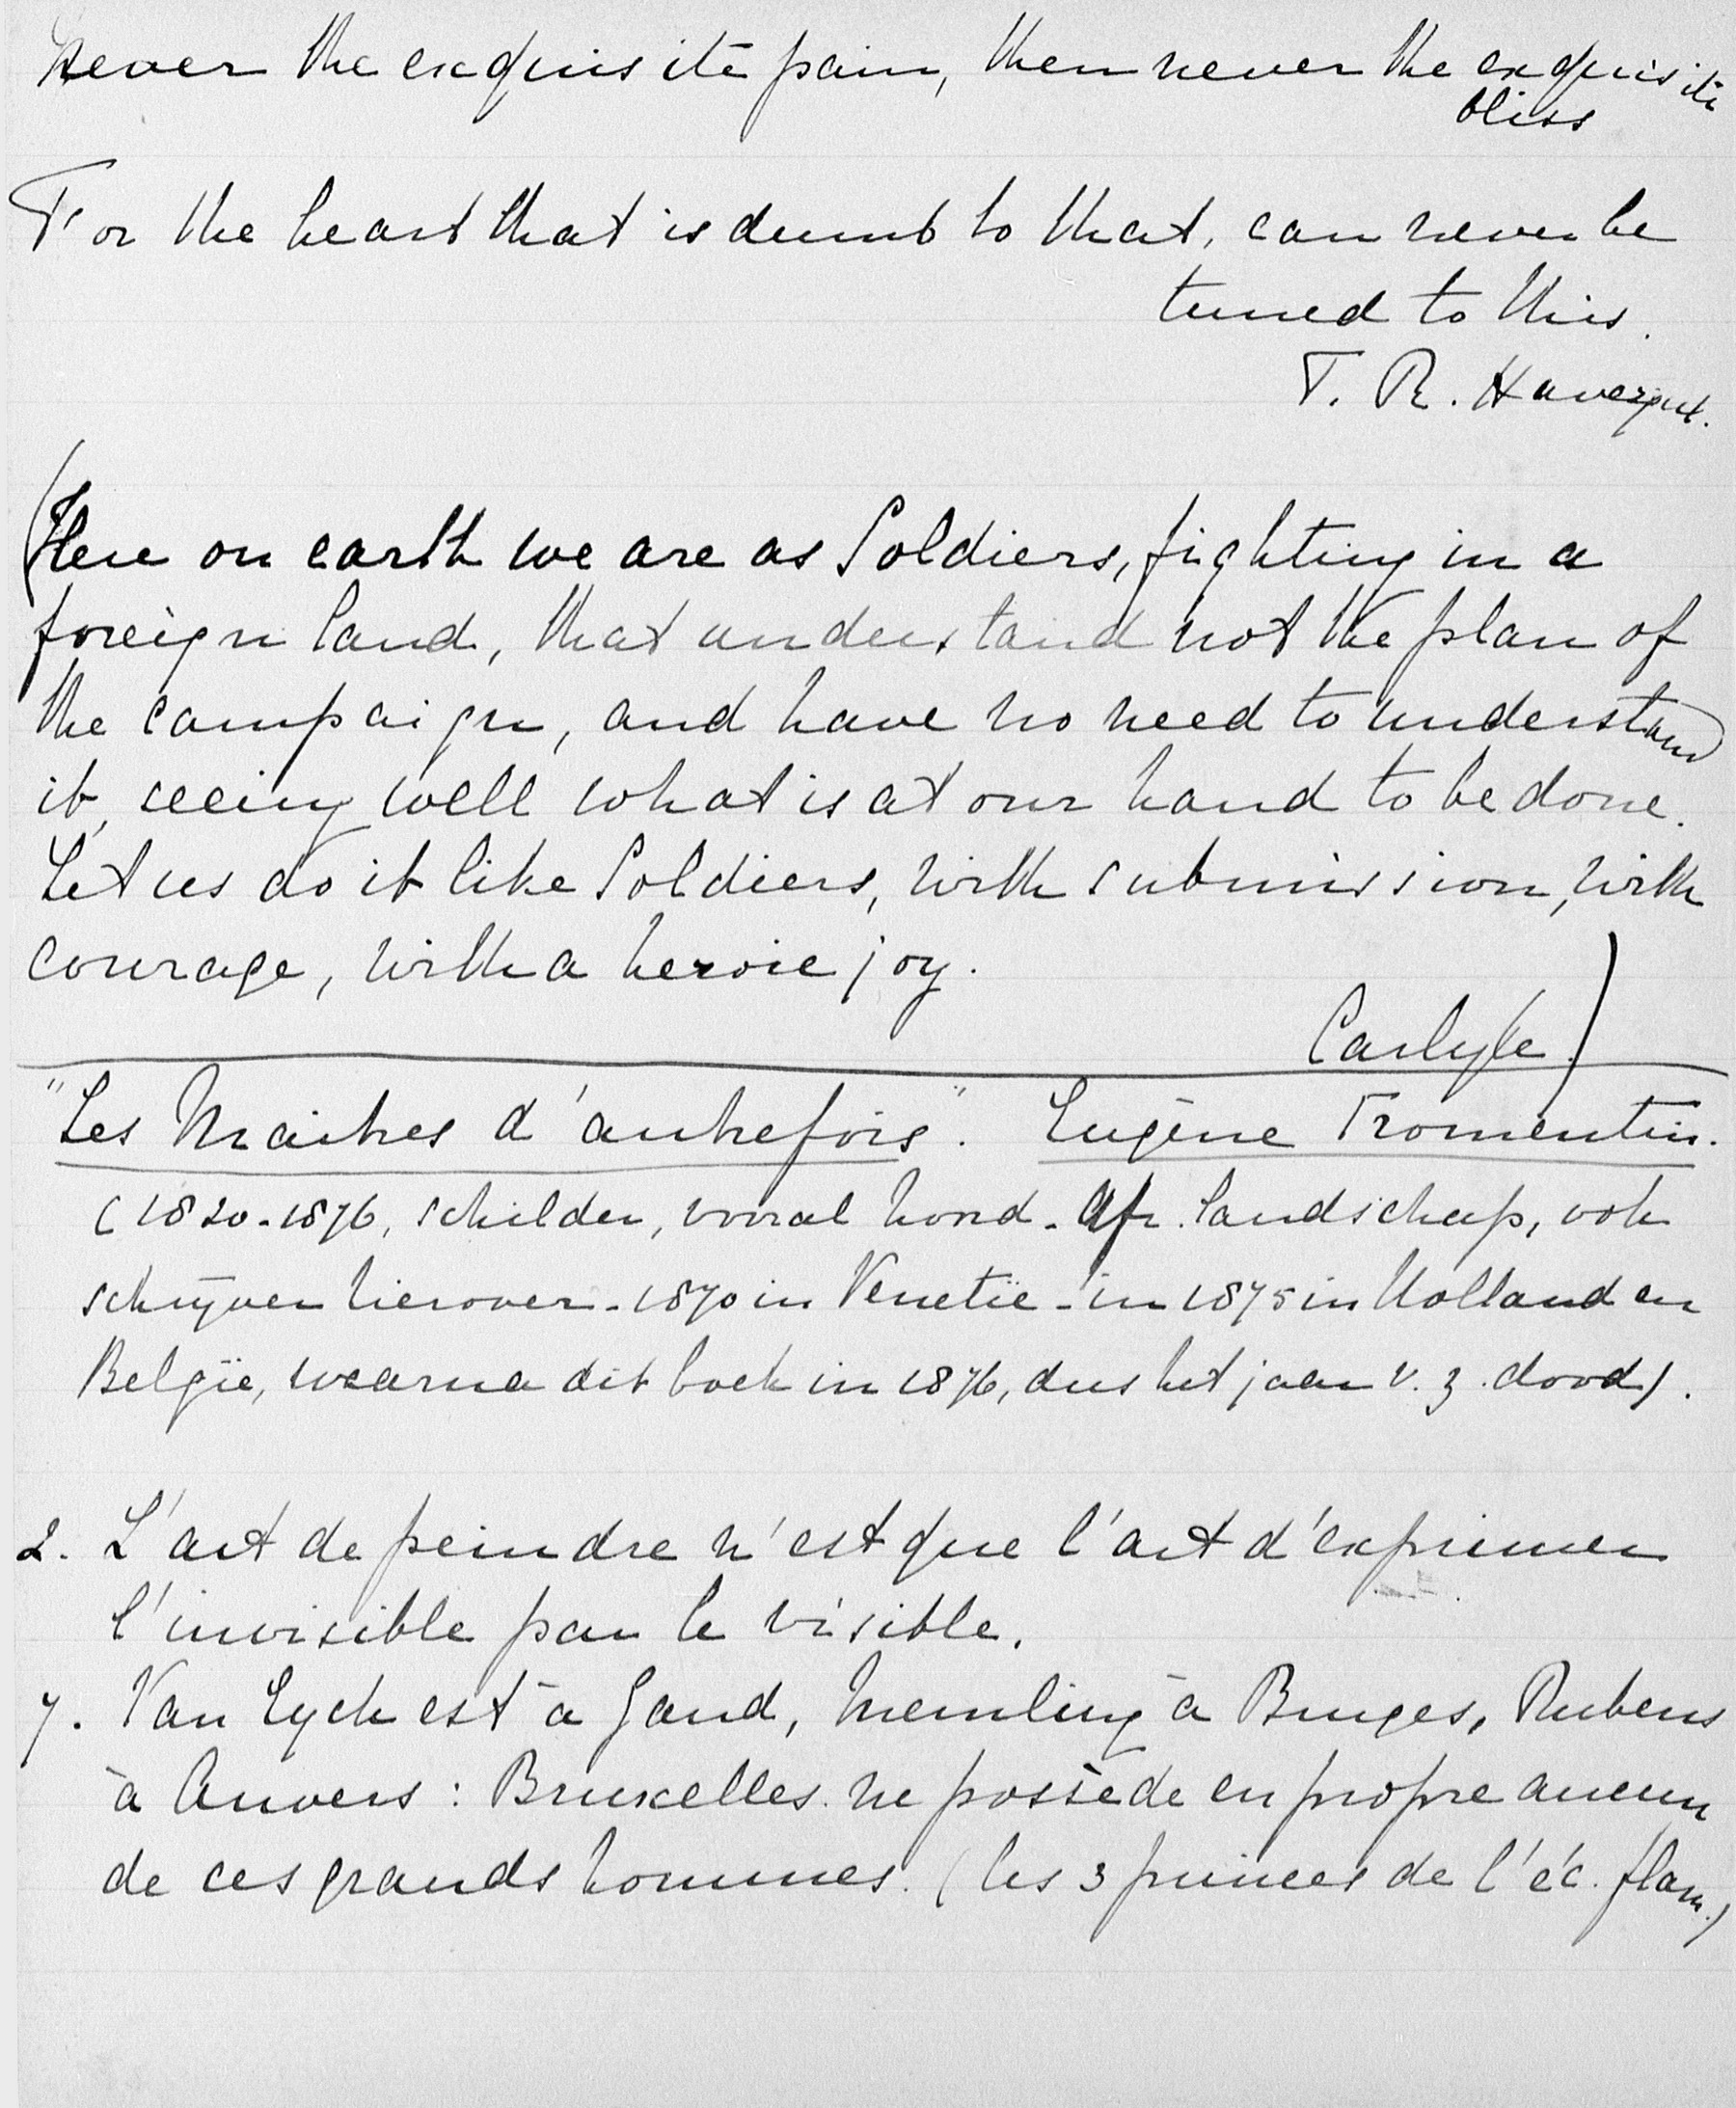 never the exquisite pain, then never the exquisite
bliss
For the heart that is dumb to that, can never be
tuned to this.
F. R. Havergal.
(Here on earth we are as Soldiers, fighting in a
foreign land, that understand not the plan of
the campaign, and have no need to understand
it, seeing well what is at our hand to be done.
Let us do it like Soldiers, with submission, with
courage, with a heroic joy.
Carlyle.)
"Les Maitres d'autrefois". Eugène Fromentin.
(1820-1876, schilder, vooral noord-Afr. landschap, ook
schrijver hierover - 1870 in Venetië - in 1875 in Holland en
België, waarna dit boek in 1876, dus het jaar v. z. dood).
2. L'art de peindre n'est que l'art d'exprimer
l'invisible par le visible.
7. Van Eyck est à Gand, Memling à Bruges, Rubens
à Anvers: Bruxelles ne possède en propre aucun
de ces grands hommes. (les 3 princes de l'éc. flam.)